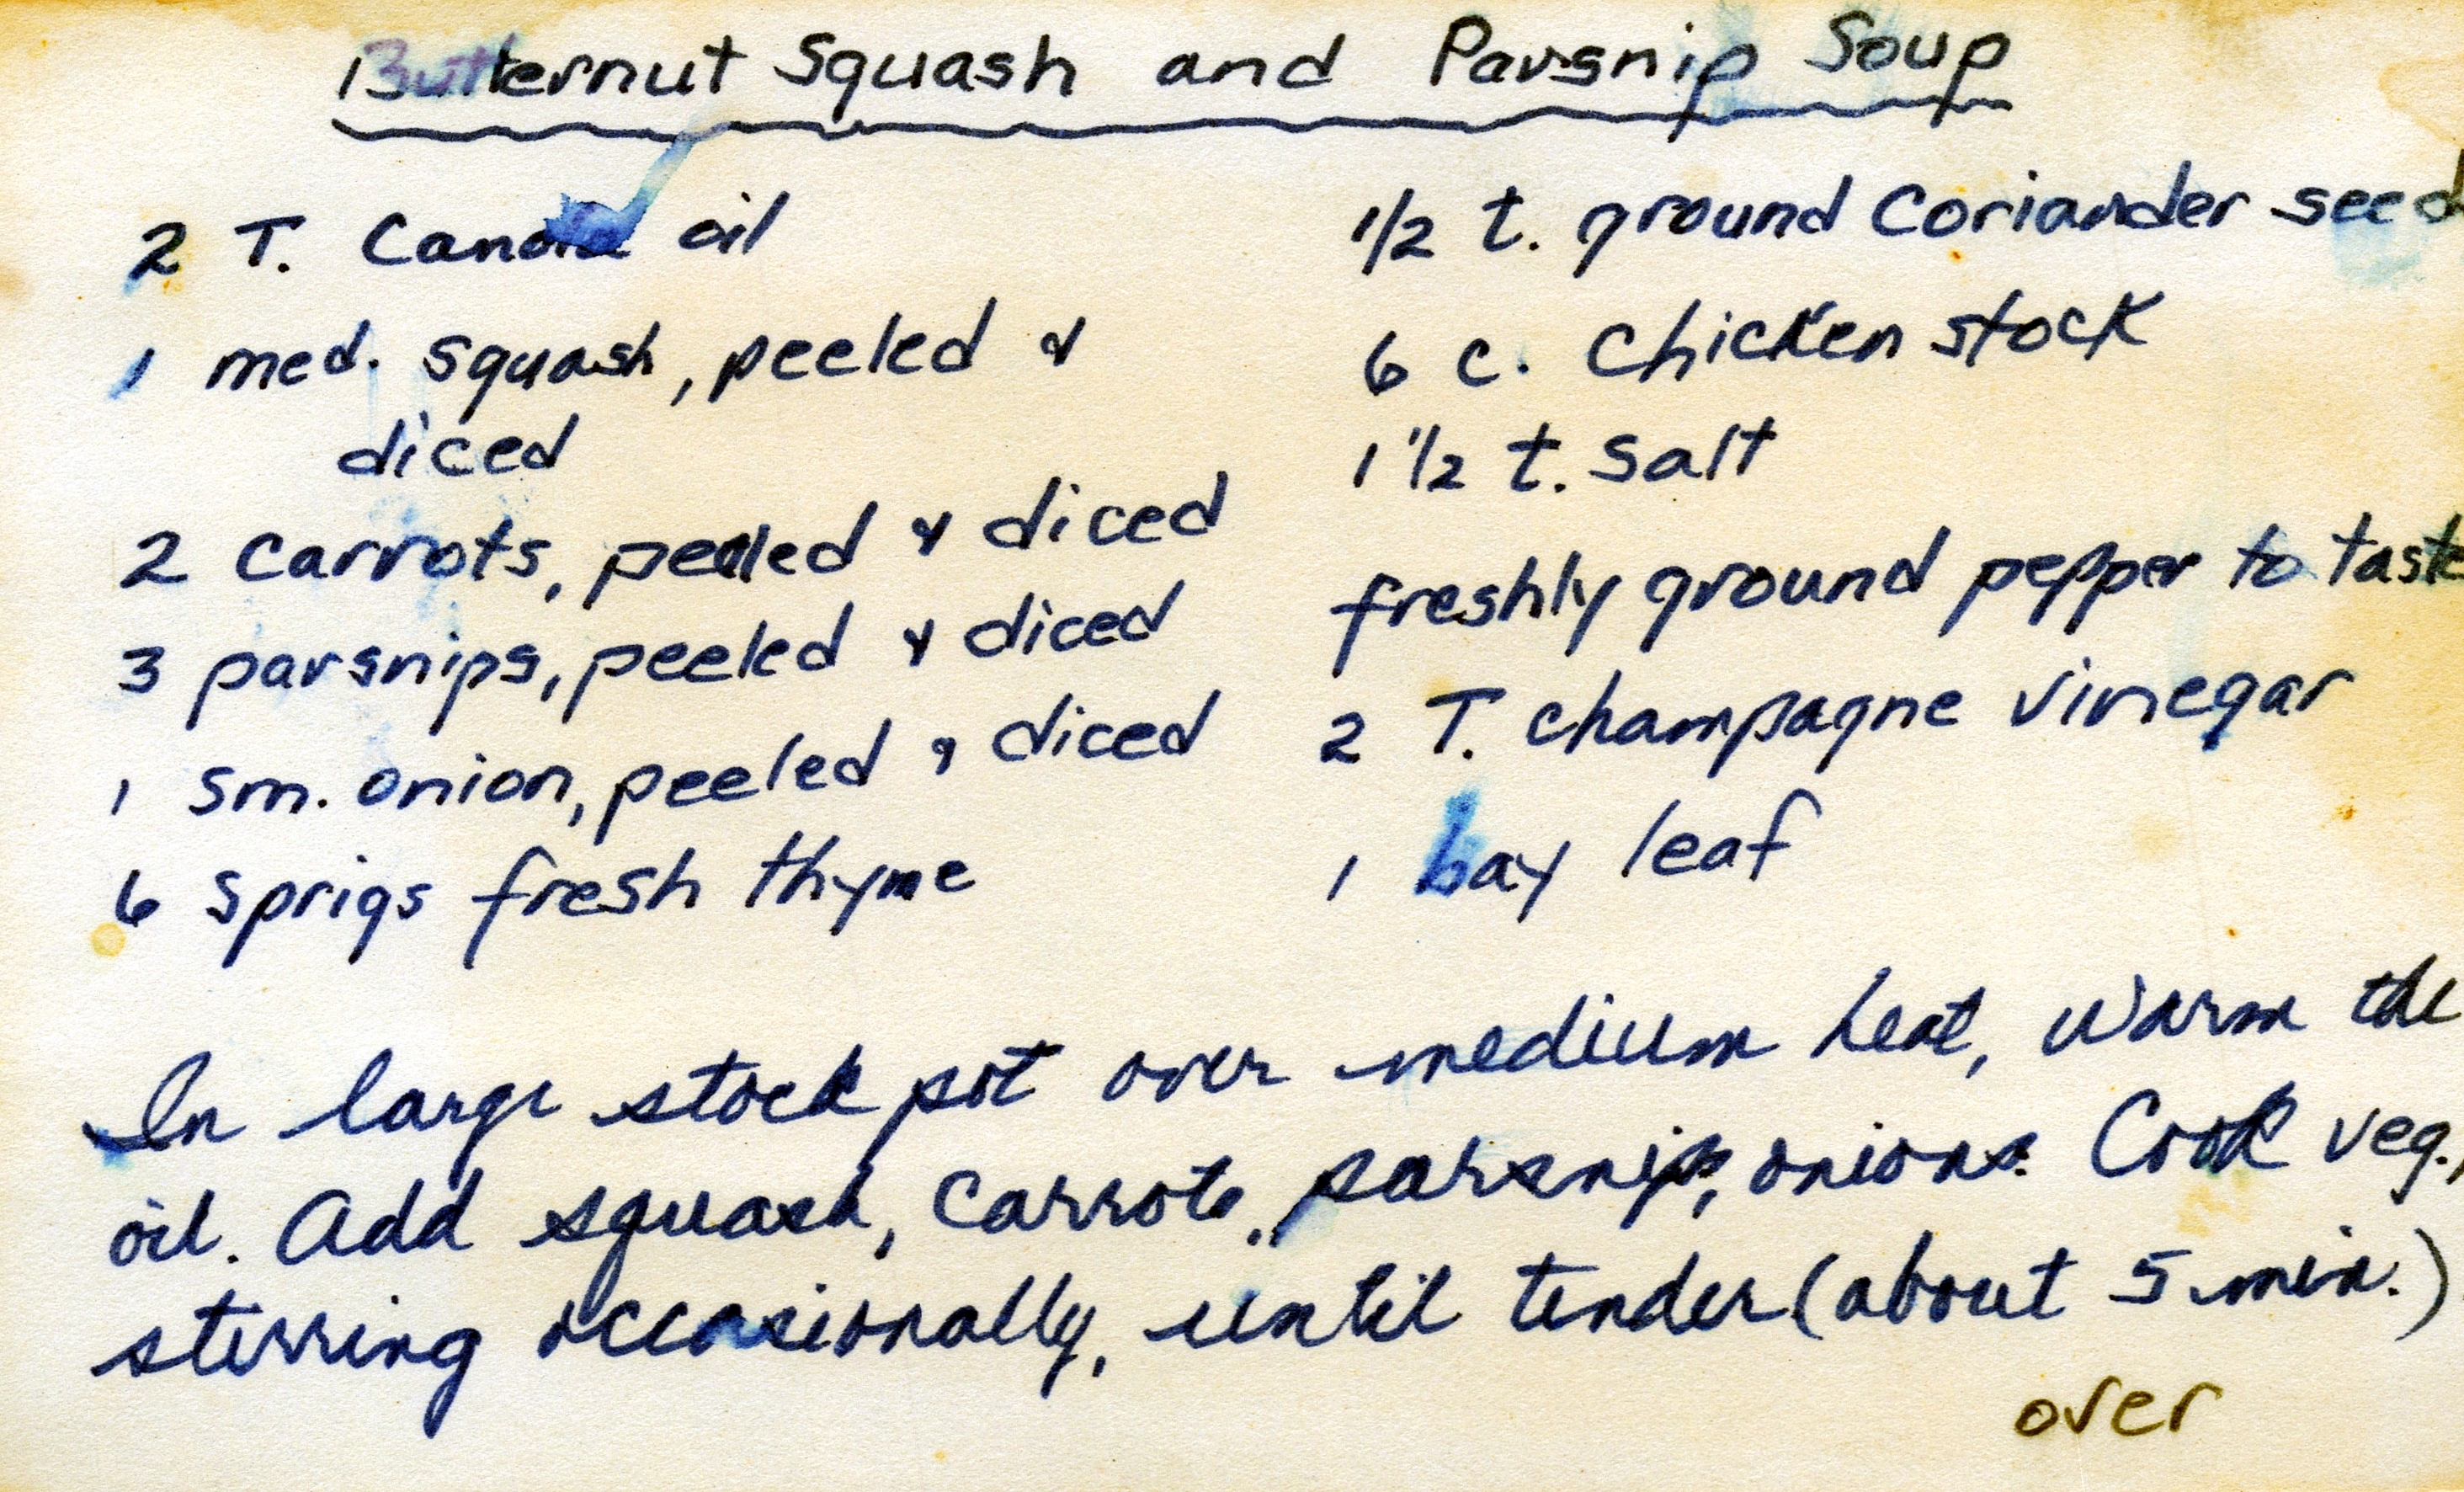 Butternut Squash and Parsnip Soup
2 T. Canola oil
1 med. squash, peeled &
diced
2 carrots, peeled & diced
3 parsnips, peeled & diced
1 sm. onion, peeled & diced
6 sprigs fresh thyme
1/2 t. ground Coriander seed
6 c. Chicken stock
1 1/2 t. salt
freshly ground pepper to taste
2 T. champagne vinegar
1 bay leaf
In large stock pot over medium heat, warm the
oil. Add squash, carrots, parsnips, onions. Cook veg.,
stirring occasionally, until tender (about 5 min.)
over